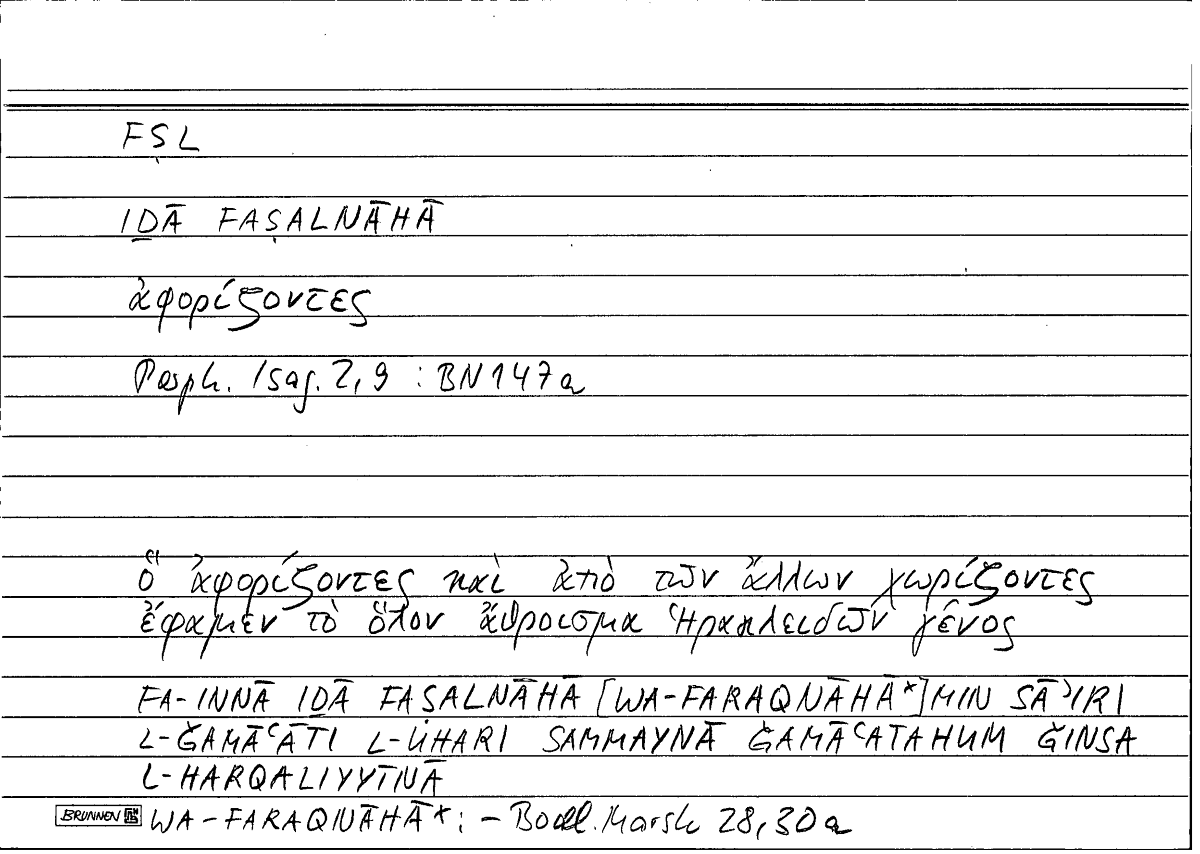 FṢL
IḎĀ FAṢALNĀHĀ
ἀφορίζοντες
Porph. Isag. 2,9 : BN 147a
ὃ ἀφορίζοντες καὶ ἀπὸ τῶν ἄλλων χωρίζοντες
ἔφαμεν τὸ ὅλον ἄθροισμα Ἡρακλειδῶν γένος
FA-INNĀ IḎĀ FAṢALNĀHĀ [WA-FARAQNĀHĀ*] MIN SĀʾIRI
L-ǦAMĀʿĀTI L-UḪARI SAMMAYNĀ ǦAMĀʿATAHUM ǦINSA
L-HARQALIYYĪNĀ
BRUNNEN WA-FARAQNĀHĀ*: - Bodl. Marsh 28,30a